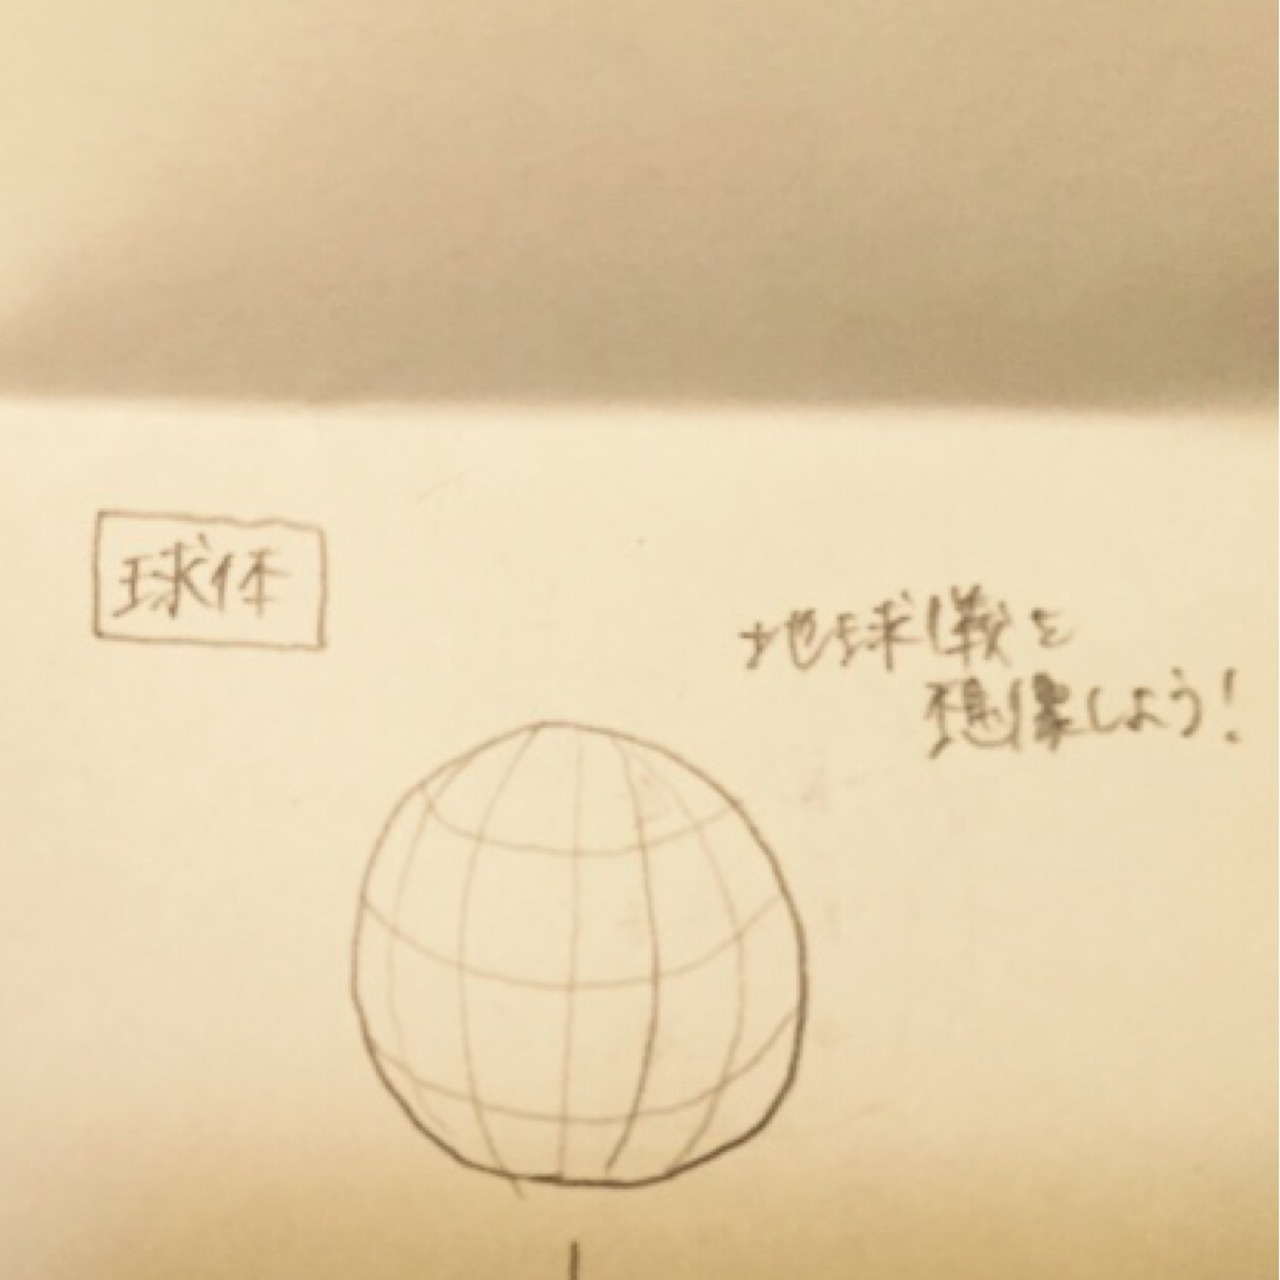 球体
地球儀を
想像しよう!